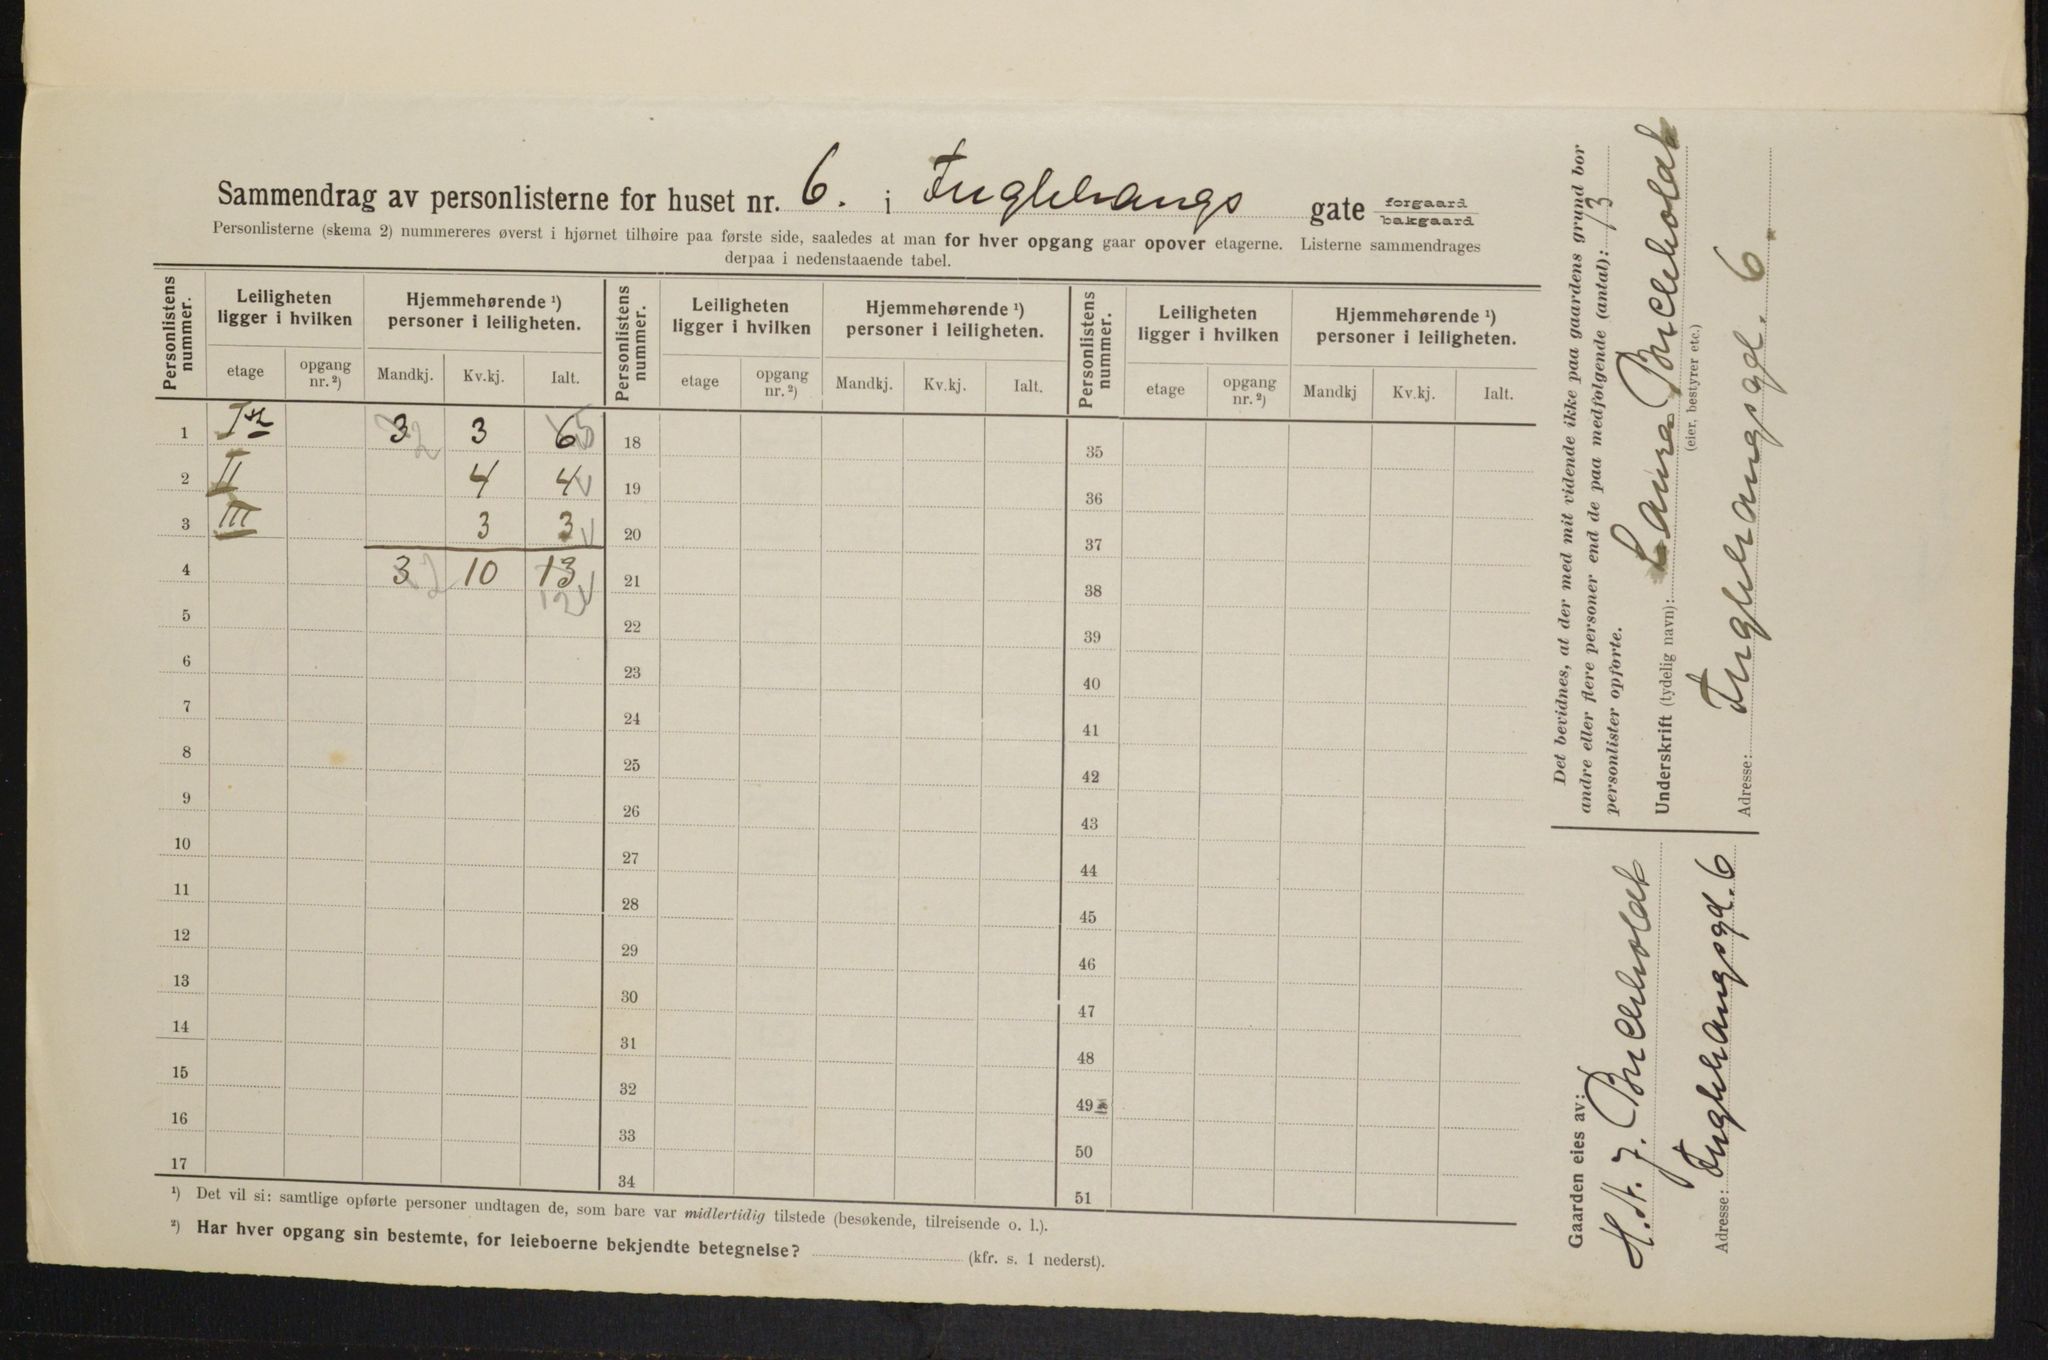 Sammendrag av personlisterne for huset nr. 6. i Fuglehangs gate forgaard bakgaard
Personlisterne (skema 2) nummereres øverst i hjørnet tilhøire paa første side, saaledes at man for hver opgang gaar opover etagerne. Listerne sammendrages
derpaa i nedenstaaende tabel.
Personlistens nummer. Leiligheten ligger i hvilken Hjemmehørende ¹) personer i leiligheten. Personlistens nummer. Leiligheten ligger i hvilken Hjemmehørende ¹) personer i leiligheten. Personlistens nummer. Leiligheten ligger i hvilken Hjemmehørende ¹) personer i leiligheten.
etage opgang nr. ²) Mandkj. Kv.kj. Ialt. etage opgang nr. ²) Mandkj. Kv.kj. Ialt. etage opgang nr. ²) Mandkj Kv.kj. Ialt.
1 I 3 2 3 6 5 18 35
2 II 4 4 19 36
3 III 3 3 20 37
4 3 2 10 13 21 38
12
5 22 39
6 23 40
7 24 41
8 25 42
9 26 43
10 27 44
11 28 45
12 29 46
13 30 47
14 31 48
15 32 49
16 33 50
17 34 51
¹) Det vil si: samtlige opførte personer undtagen de, som bare var midlertidig tilstede (besøkende, tilreisende o. l.).
²) Har hver opgang sin bestemte, for leieboerne bekjendte betegnelse? (kfr. s. 1 nederst).
Det bevidnes, at der med mit vidende ikke paa gaardens grund bor
andre eller flere personer end de paa medfølgende (antal): 13
personlister opførte.
Underskrift (tydelig navn): Laura Buchholdt
(eier, bestyrer etc.)
Adresse: Fuglehangsgd. 6
Gaarden eies av:
H. St. J. Buchholdt
Adresse: Fuglehangsgd. 6